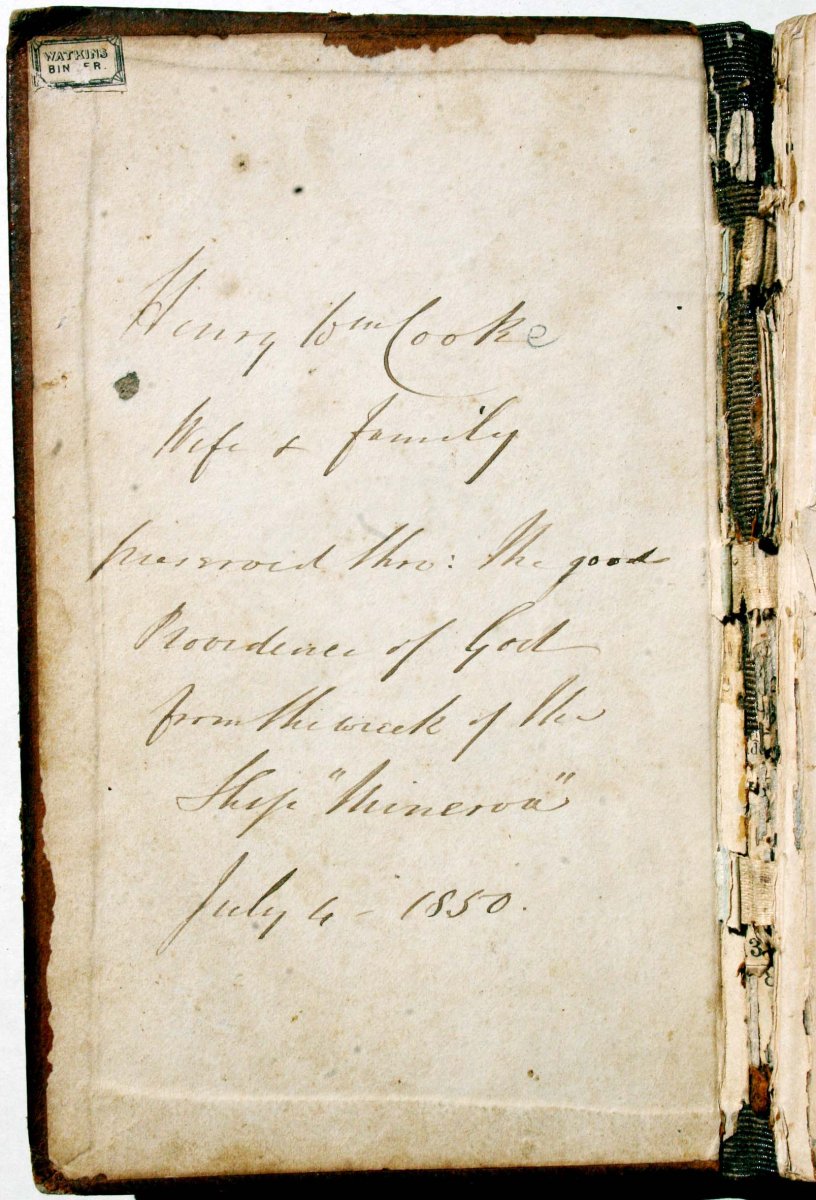 WATKINS
BIN ER.
Henry Wm Cooke
Wife & family
preserved thro: the good
Providence of God
from the wreck of the
Ship "Minerva"
July 4 - 1850.
3